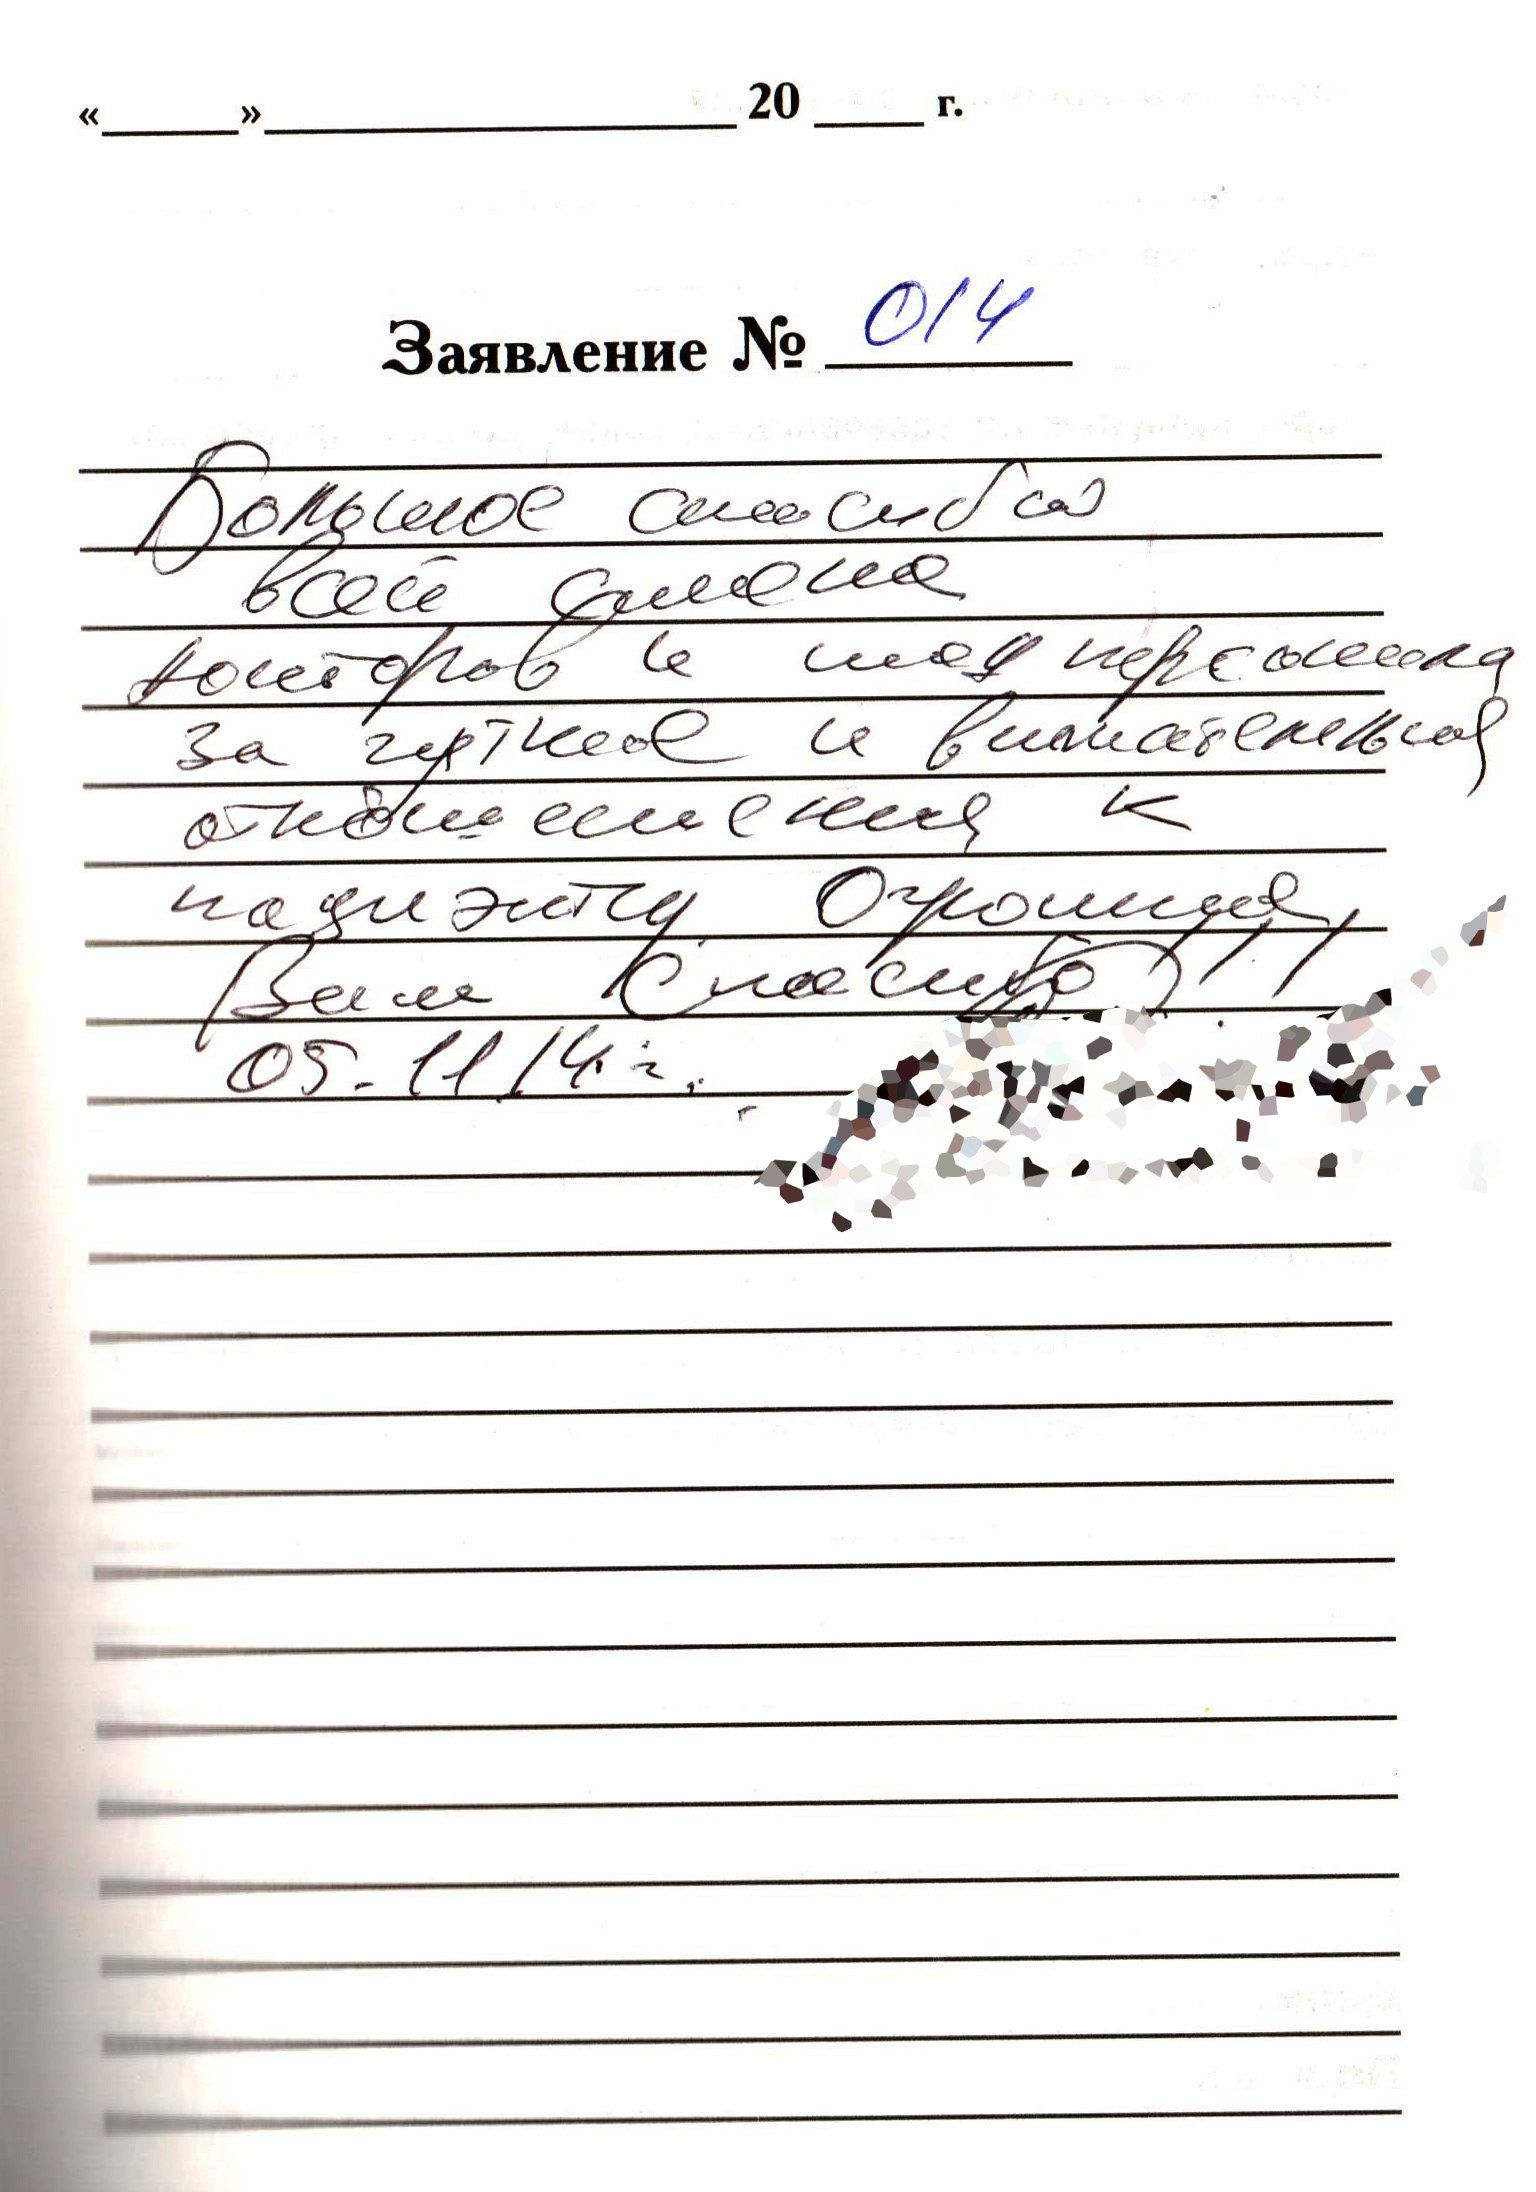 «______»____________________ 20 ____ г.
Заявление № 014
Большое спасибо
всей смене
докторов и мед персонала
за чуткое и внимательное
отношение к
пациэнту Огромное
Вам Спасибо!!!
05.11.14. г.